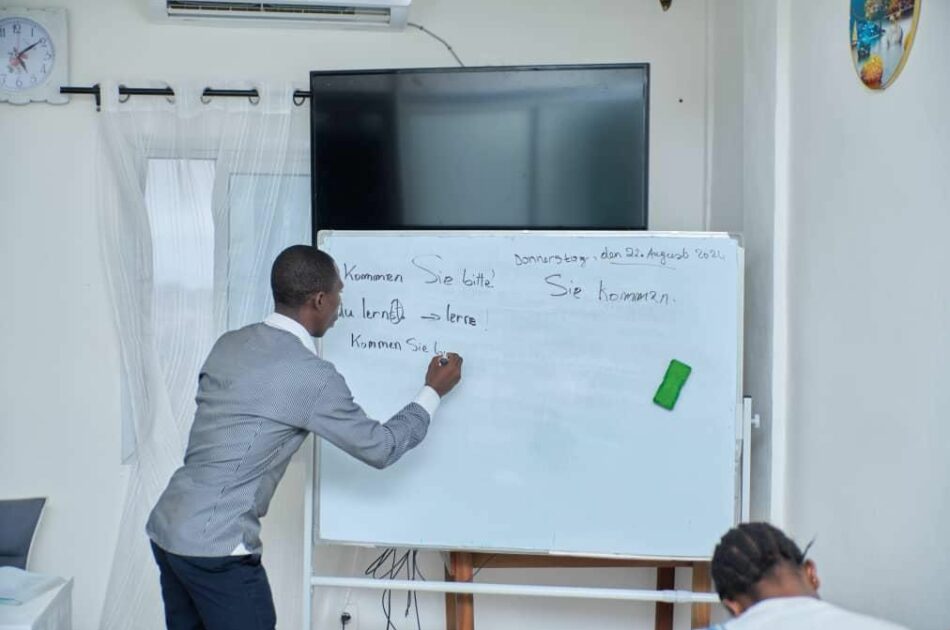 Donnerstag, den 22. August 2024
Kommen Sie bitte!
Sie kommen.
du lernst → lerne!
Kommen Sie b